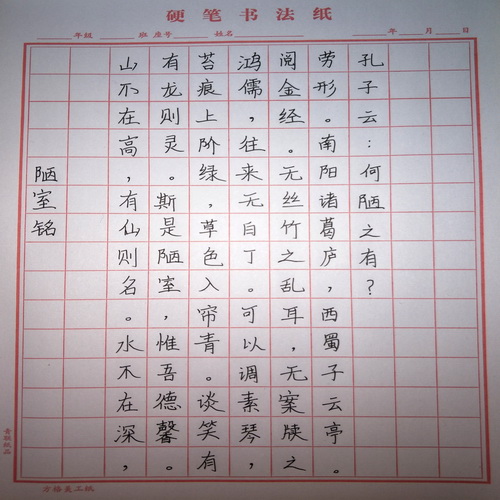 硬笔书法纸
年级 班 座号 姓名 年 月 日
陋室铭
山不在高，有仙则名。水不在深，
有龙则灵。斯是陋室，惟吾德馨。
苔痕上阶绿，草色入帘青。谈笑有
鸿儒，往来无白丁。可以调素琴，
阅金经。无丝竹之乱耳，无案牍之
劳形。南阳诸葛庐，西蜀子云亭。
孔子云：何陋之有？